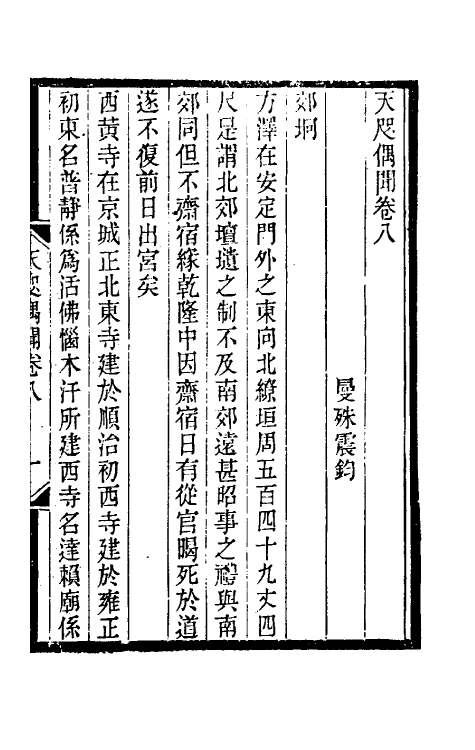 天咫偶聞卷八
曼殊震鈞
郊坰
方澤在安定門外之東向北繚垣周五百四十九丈四
尺是謂北郊壇壝之制不及南郊遠甚昭事之禮與南
郊同但不齋宿緣乾隆中因齋宿日有從官暍死於道
遂不復前日出宮矣
西黃寺在京城正北東寺建於順治初西寺建於雍正
初東名普靜係爲活佛惱木汗所建西寺名達賴廟係
天咫偶聞卷八 一